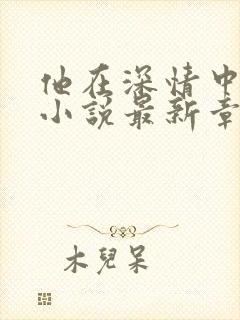 他在深情中
小说最新章
木兒呆